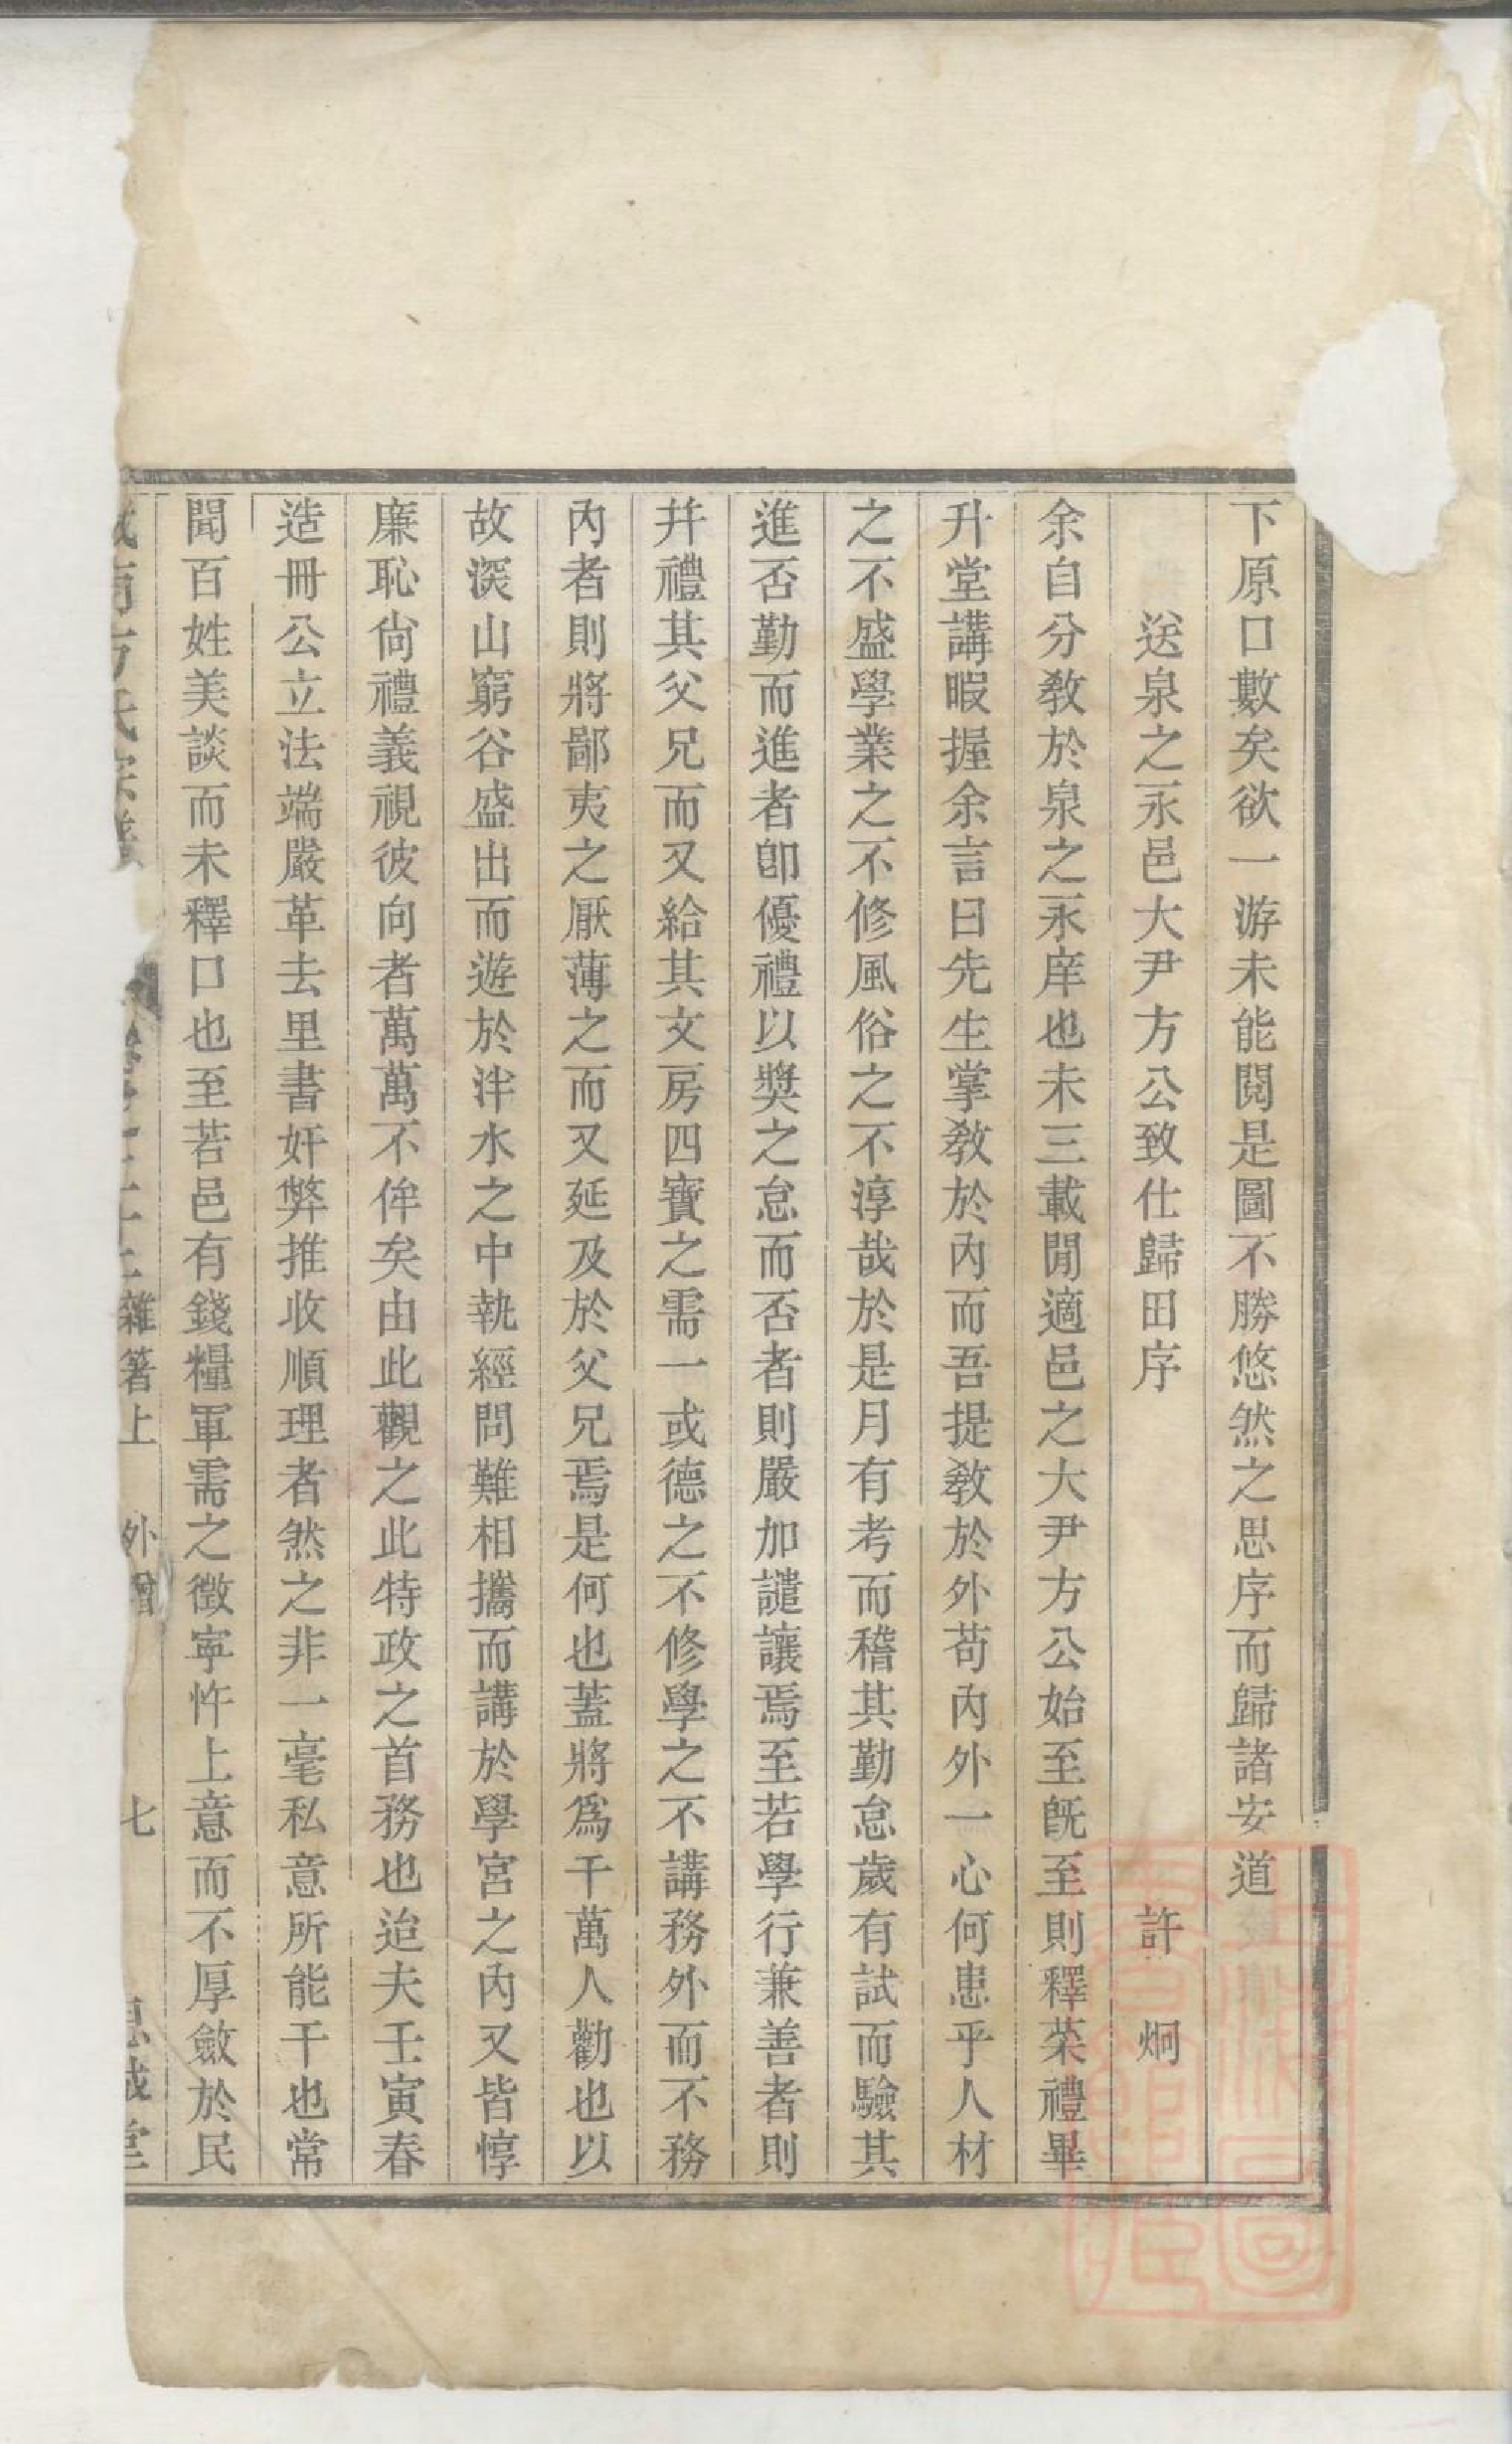 下原口數矣欲一游未能閱是圖不勝悠然之思序而歸諸安道
送泉之永邑大尹方公致仕歸田序 許炯
余自分教於泉之永庠也未三載閒適邑之大尹方公始至旣至則釋菜禮畢
升堂講暇握余言曰先生掌教於內而吾提教於外苟內外一心何患乎人材
之不盛學業之不修風俗之不淳哉於是月有考而稽其勤怠歲有試而驗其
進否勤而進者卽優禮以奬之怠而否者則嚴加譴讓焉至若學行兼善者則
幷禮其父兄而又給其文房四寶之需一或德之不修學之不講務外而不務
內者則將鄙夷之厭薄之而又延及於父兄焉是何也蓋將爲千萬人勸也以
故深山窮谷盛出而遊於泮水之中執經問難相攜而講於學宮之內又皆惇
廉恥尙禮義視彼向者萬萬不侔矣由此觀之此特政之首務也迨夫壬寅春
造冊公立法端嚴革去里書奸弊推收順理者然之非一毫私意所能干也常
聞百姓美談而未釋口也至若邑有錢糧軍需之徵寧忤上意而不厚斂於民
雜箸上 外 七